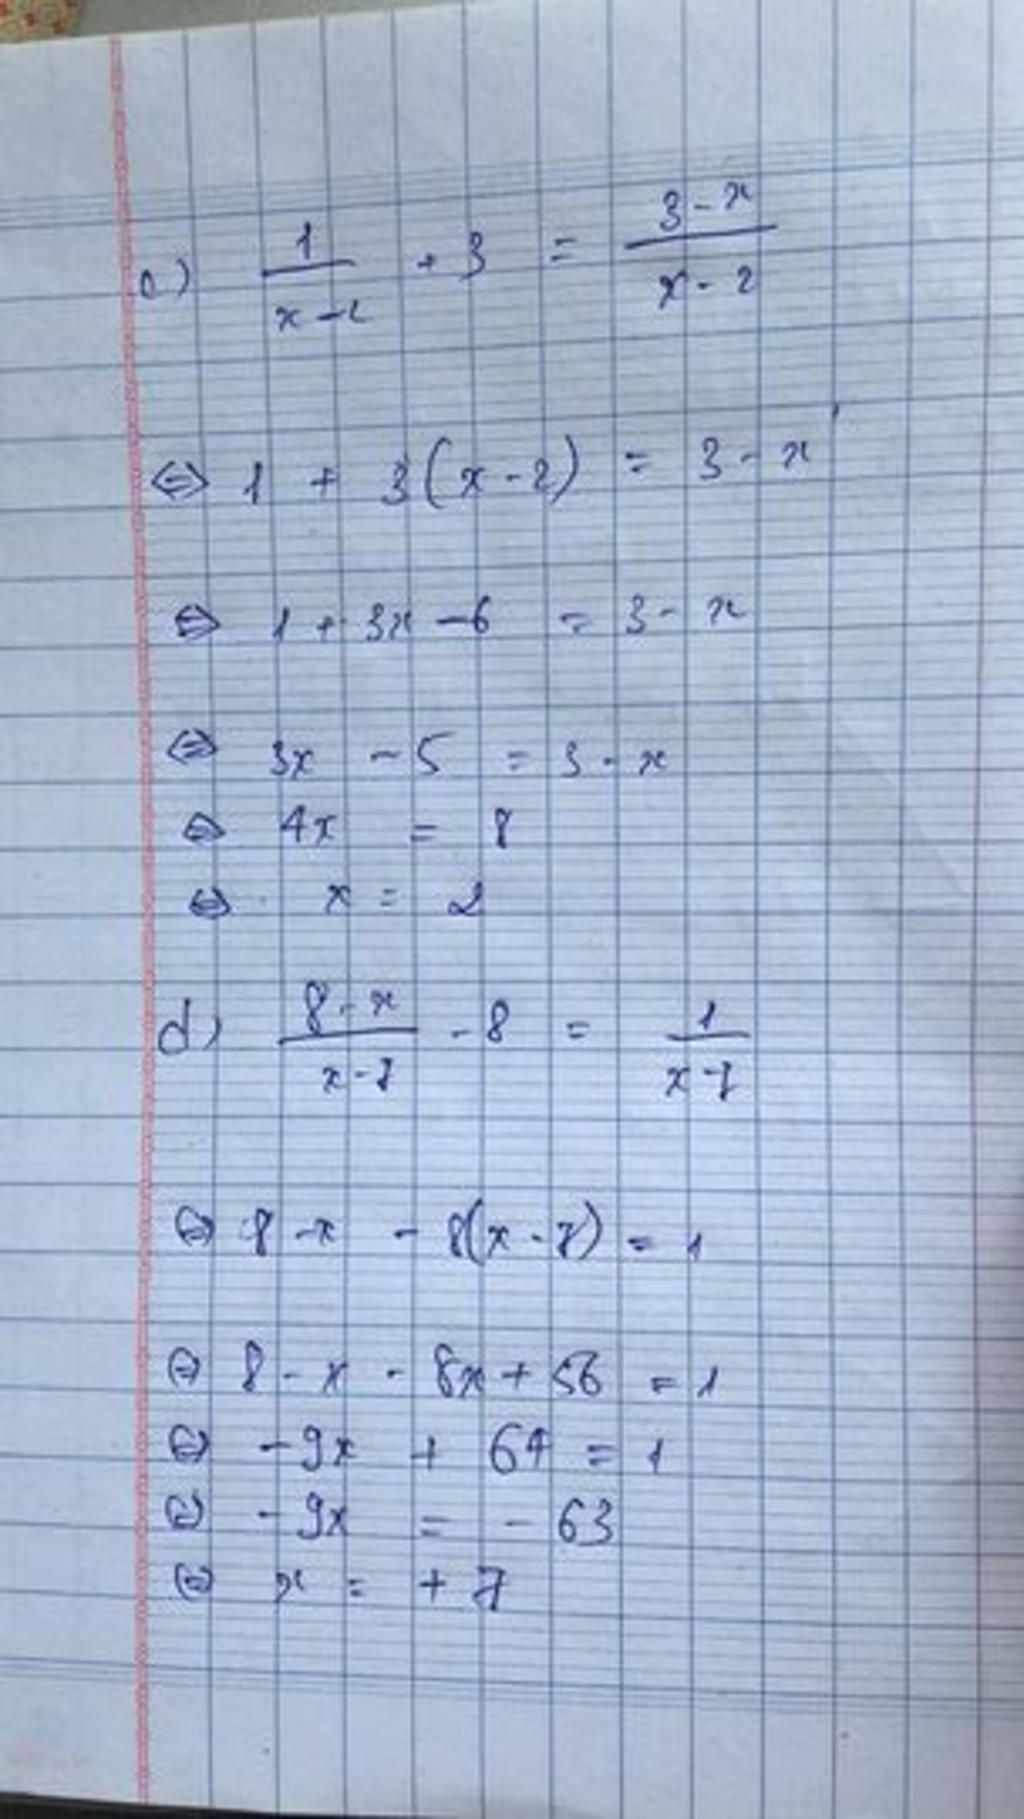 c) \frac{1}{x-2} + 3 = \frac{3-x}{x-2}
⇔ 1 + 3(x-2) = 3-x
⇔ 1 + 3x - 6 = 3-x
⇔ 3x - 5 = 3-x
⇔ 4x = 8
⇔ x = 2
d) \frac{8-x}{x-7} - 8 = \frac{1}{x-7}
⇔ 8-x - 8(x-7) = 1
⇔ 8-x - 8x + 56 = 1
⇔ -9x + 64 = 1
⇔ -9x = -63
⇔ x = +7